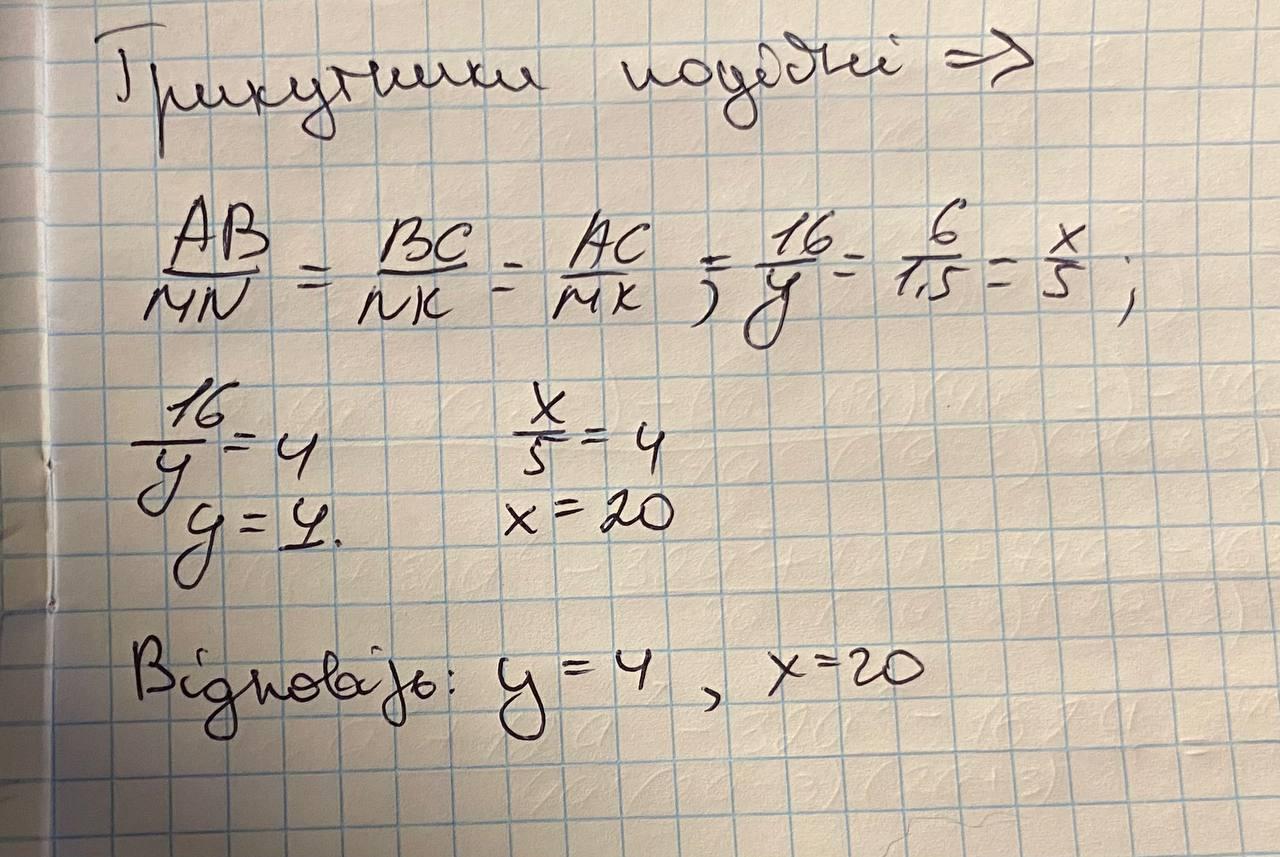 Трикутники подібні ⇒
AB/MN = BC/NK = AC/MK ; 16/y = 6/1,5 = x/5 ;
16/y = 4 x/5 = 4
y = 4. x = 20
Відповідь: y = 4 , x = 20